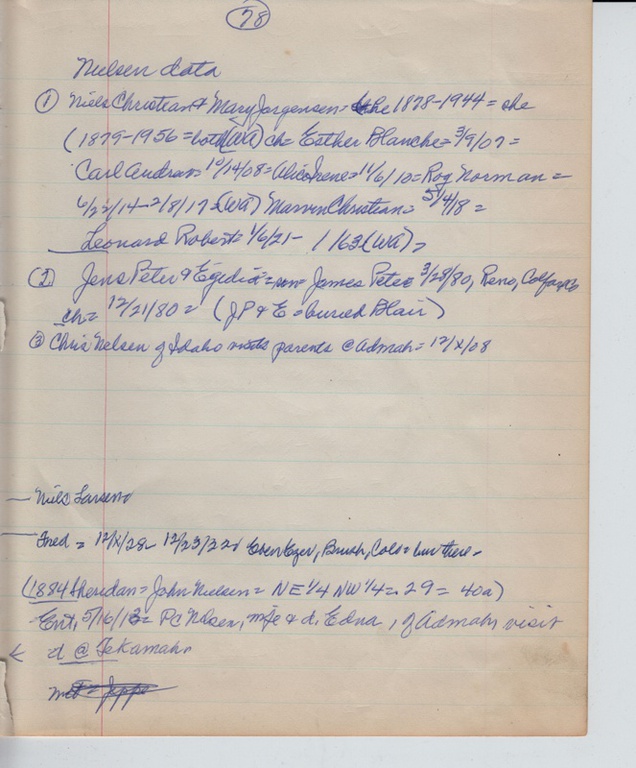 78
Nielsen data
① Niels Christian & Mary Jorgensen = he 1878-1944 = she
(1879-1956 = both (WA) ch = Esther Blanche = 3/9/07 =
Carl Andras = 10/14/08 = Alice Irene = 11/6/10 = Roy Norman =
6/22/14 - 2/8/17 (WA) Marvin Christian = 5/4/18 =
Leonard Robert = 1/6/21 - 1/63 (WA) =
② Jens Peter & Egedia = son = James Peter 3/28/80, Reno, Colfax
ch = 12/21/80 = (JP & E = buried Blair)
③ Chris Nelsen of Idaho visits parents @ Admah = 12/x/08
Niels Larsen
Fred = 12/x/28 12/23/32 Ebenezer, Brush, Colo = bur there -
(1884 Sheridan = John Nielsen = NE 1/4 NW 1/4 = 29 = 40a)
Ent, 5/16/13 = PC Nelsen, wife & d. Edna, of Admah visit
d @ Tekamah